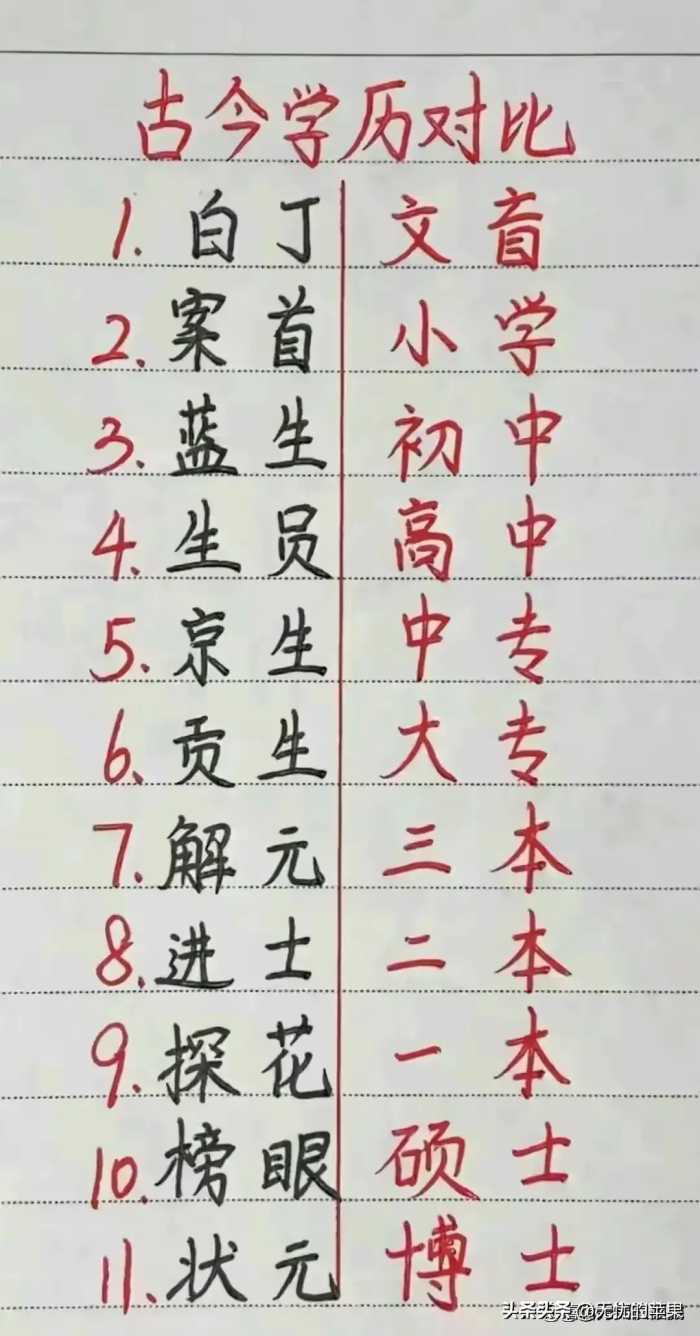 古今学历对比
1. 白丁 文盲
2. 案首 小学
3. 蓝生 初中
4. 生员 高中
5. 京生 中专
6. 贡生 大专
7. 解元 三本
8. 进士 二本
9. 探花 一本
10. 榜眼 硕士
11. 状元 博士
头条 @无忧的苹果